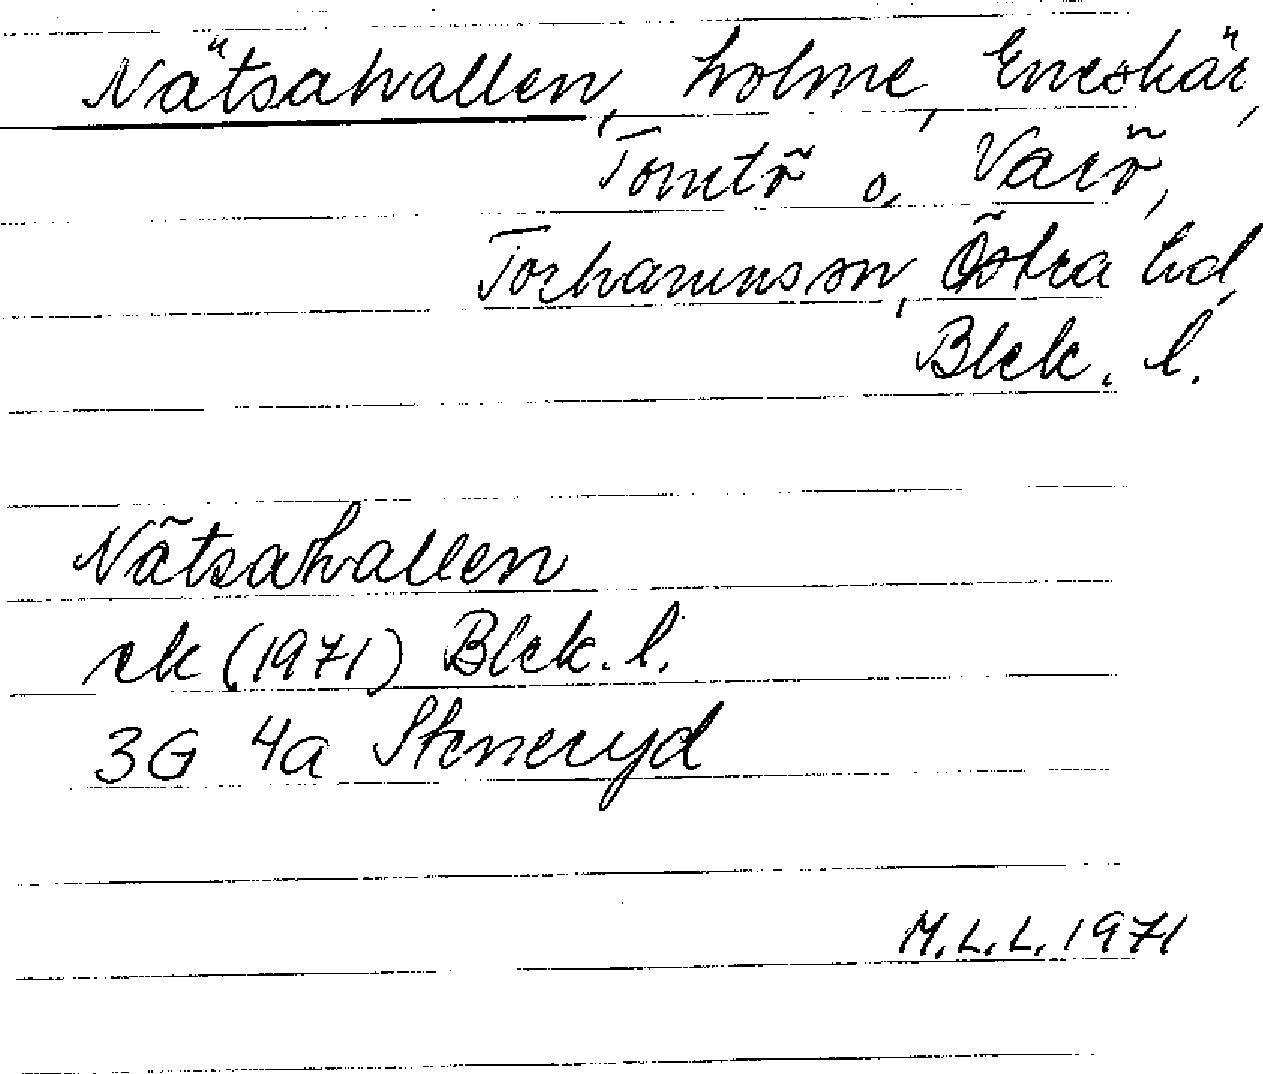 Nätsahallen, holme, Eneskär,
Tomtö o, Varö,
Torhamns sn, Östra hd,
Blek. l.
Nätsahallen
ek (1971) Blek. l.
3G 4a Steneryd
M.L.L. 1971